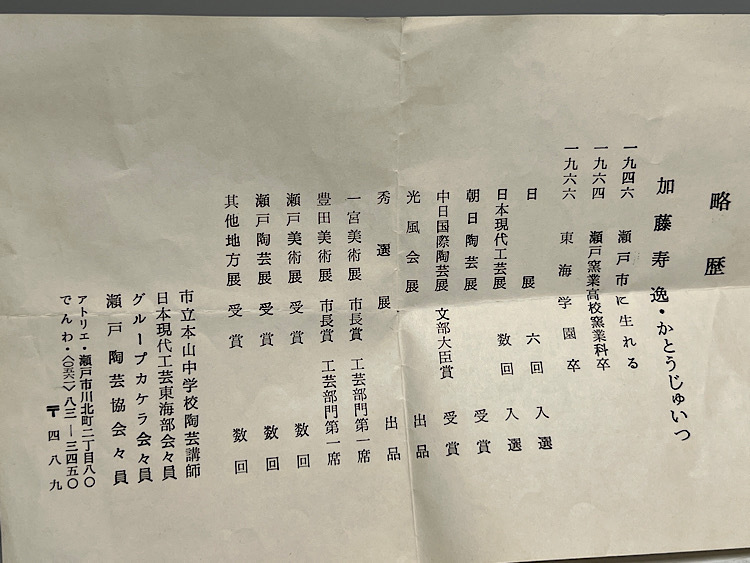 略歴
加藤寿逸・かとうじゅいつ
一九四六 瀬戸市に生れる
一九六四 瀬戸窯業高校窯業科卒
一九六六 東海学園卒
日展 六回入選
日本現代工芸展 数回入選
朝日陶芸展 受賞
中日国際陶芸展 文部大臣賞 受賞
光風会展 出品
秀選展 出品
一宮美術展 市長賞 工芸部門第一席
豊田美術展 市長賞 工芸部門第一席
瀬戸美術展 受賞 数回
瀬戸陶芸展 受賞 数回
其他地方展 受賞 数回
市立本山中学校陶芸講師
日本現代工芸東海部会々員
グループカケラ会々員
瀬戸陶芸協会々員
アトリエ・瀬戸市川北町二丁目八〇
でんわ・〈〇五六一〉八三―三四五〇
〒四八九